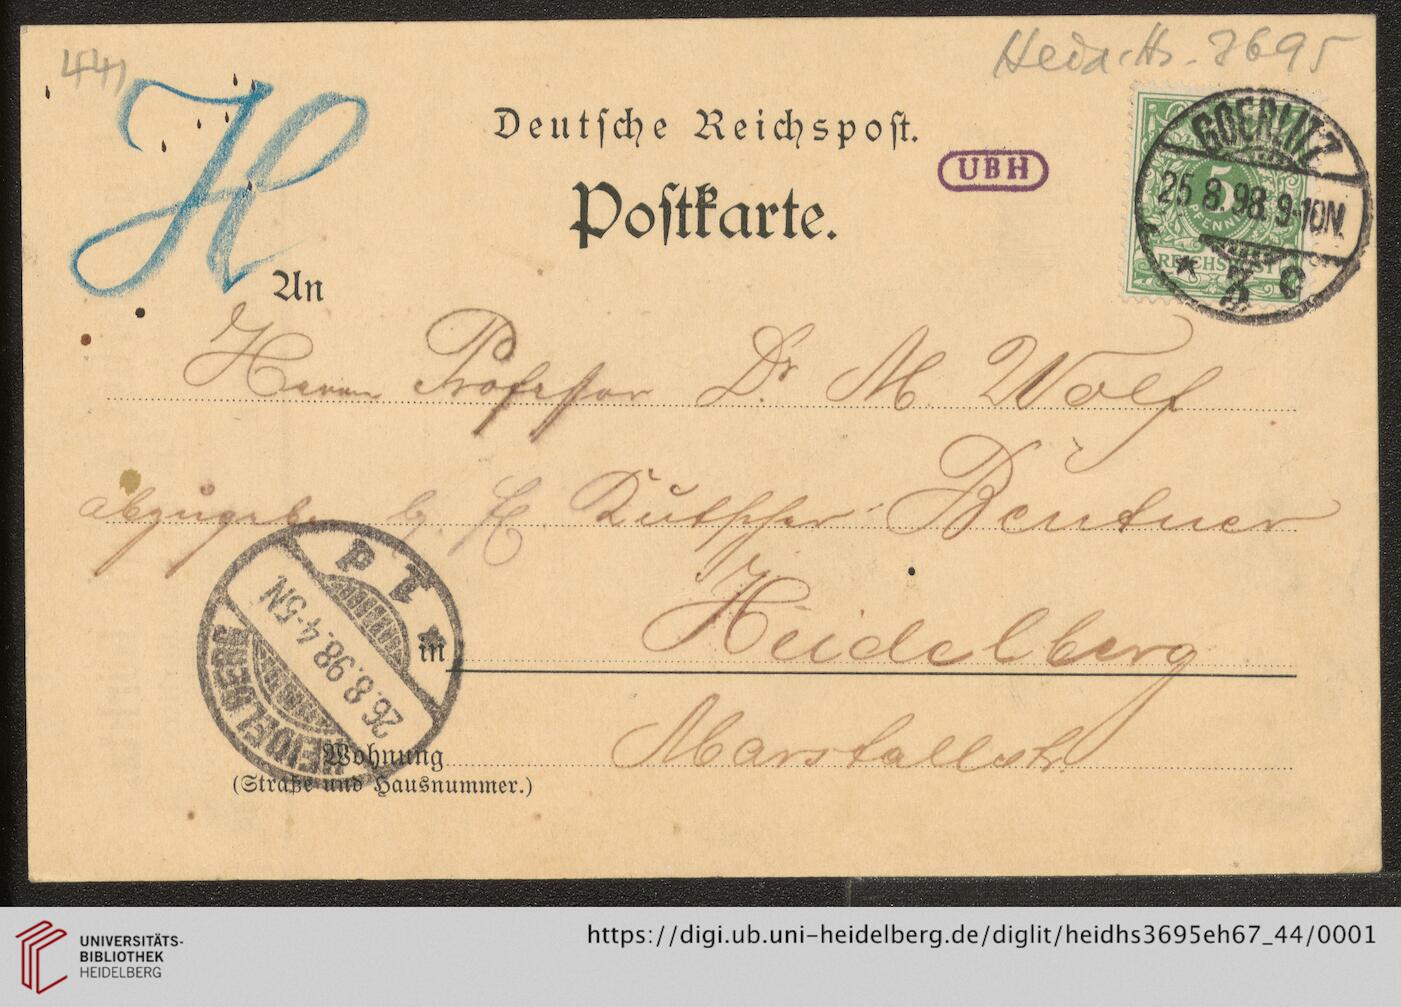 44)
H
Heid. Hs. 3695
Deutsche Reichspost.
UBH
Postkarte.
GOERLITZ
25 8.98. 9-10N.
* 3 e
5
PFENNIG
REICHSPOST
An
Herrn Professor Dr. M. Wolf
abzugeben b. H. Kutscher Bentner
Heidelberg
in
Marstallstr.
Wohnung
(Straße und Hausnummer.)
HEIDELBERG
26.8.98.4-5N
* 1 P
UNIVERSITÄTS-
BIBLIOTHEK
HEIDELBERG
https://digi.ub.uni-heidelberg.de/diglit/heidhs3695eh67_44/0001